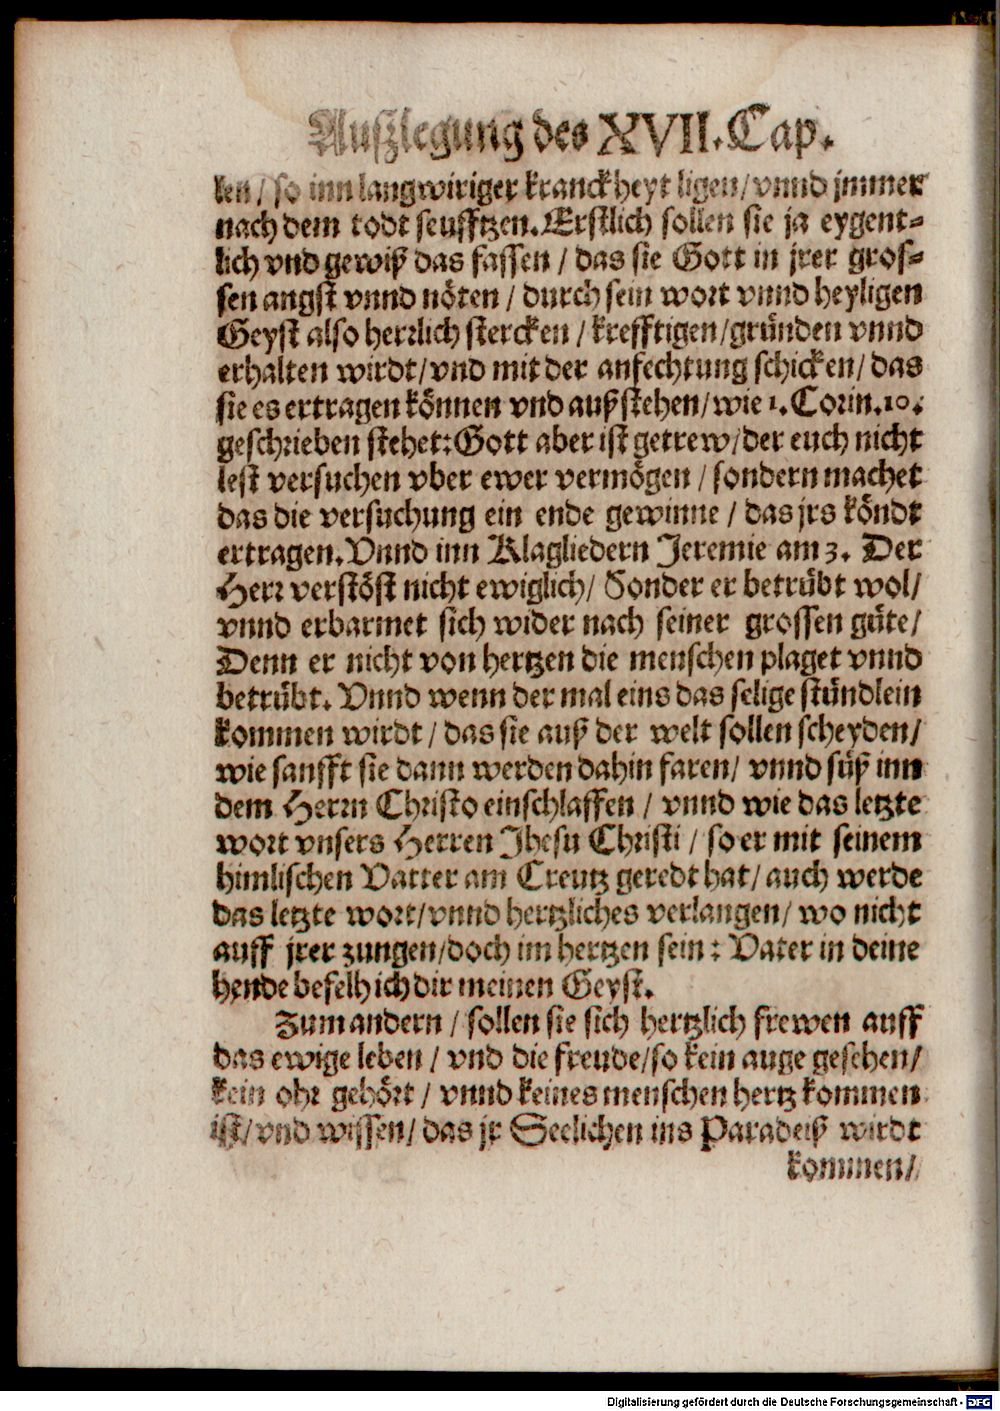 Auſzlegung des XVII. Cap.
len / ſo inn langwiriger kranckheyt ligen / vnnd jmmer
nach dem todt ſeufftzen. Erſtlich ſollen ſie ja eygent⸗
lich vnd gewiß das faſſen / das ſie Gott in jrer groſ⸗
ſen angſt vnnd nöten / durch ſein wort vnnd heyligen
Geyſt alſo herꝛlich ſtercken / krefftigen / gründen vnnd
erhalten wirdt / vnd mit der anfechtung ſchicken / das
ſie es ertragen können vnd außſtehen / wie 1. Corin. 10.
geſchꝛieben ſtehet: Gott aber iſt getrew / der euch nicht
leſt verſuchen vber ewer vermögen / ſondern machet
das die verſuchung ein ende gewinne / das jrs köndt
ertragen. Vnnd inn Klagliedern Jeremie am 3. Der
Herꝛ verſtöſt nicht ewiglich / Sonder er betrübt wol /
vnnd erbarmet ſich wider nach ſeiner groſſen güte /
Denn er nicht von hertzen die menſchen plaget vnnd
betrübt. Vnnd wenn der mal eins das ſelige ſtündlein
kommen wirdt / das ſie auß der welt ſollen ſcheyden /
wie ſanfft ſie dann werden dahin faren / vnnd ſüß inn
dem Herꝛn Chriſto einſchlaffen / vnnd wie das letzte
woꝛt vnſers Herren Jheſu Chꝛiſti / ſo er mit ſeinem
himliſchen Vatter am Creutz geredt hat / auch werde
das letzte woꝛt / vnnd hertzliches verlangen / wo nicht
auff jrer zungen / doch im hertzen ſein: Vater in deine
hende befelh ich dir meinen Geyſt.
Zum andern / ſollen ſie ſich hertzlich frewen auff
das ewige leben / vnd die freude / ſo kein auge geſehen /
kein ohꝛ gehöꝛt / vnnd keines menſchen hertz kommen
iſt / vnd wiſſen / das jr Seelichen ins Paradeiß wirdt
kommen /
Digitalisierung gefördert durch die Deutsche Forschungsgemeinschaft - DFG